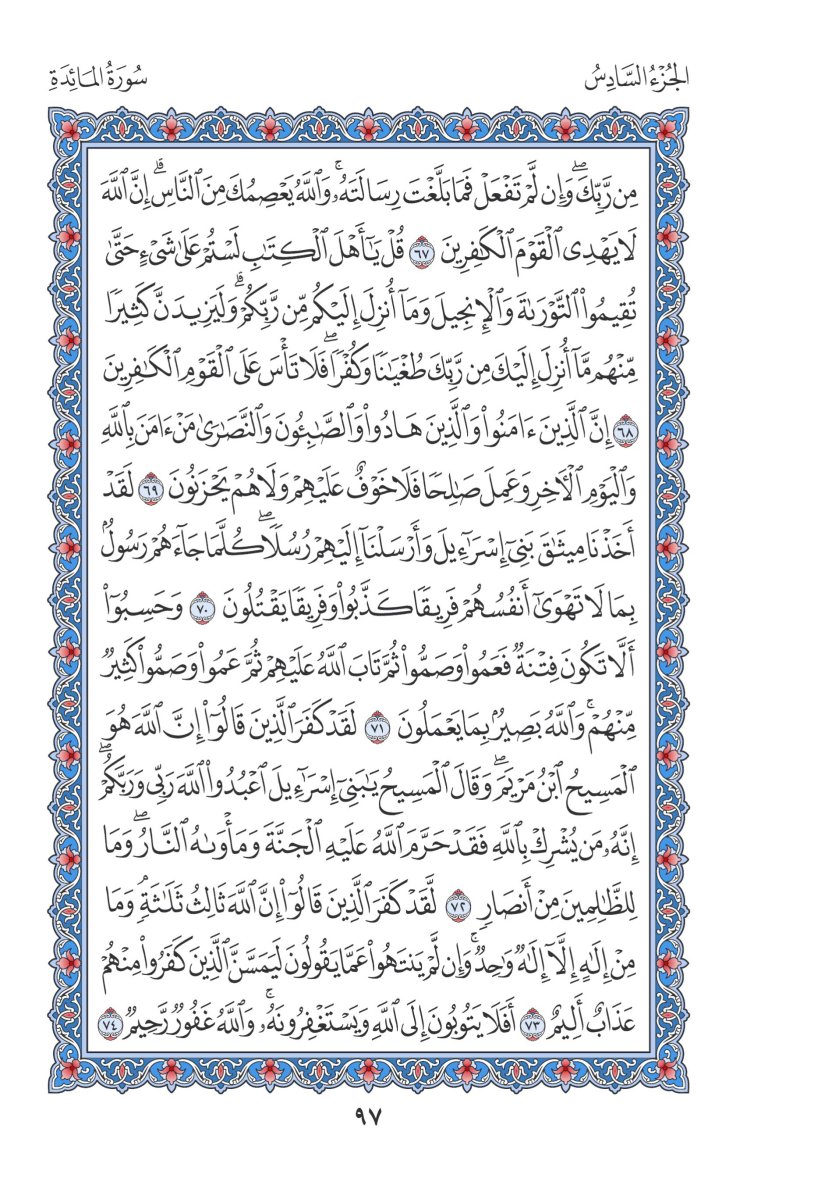 الجُزْءُ السَّادِسُ
سُورَةُ المَائِدَةِ
مِن رَّبِّكَۖ وَإِن لَّمۡ تَفۡعَلۡ فَمَا بَلَّغۡتَ رِسَالَتَهُۥۚ وَٱللَّهُ يَعۡصِمُكَ مِنَ ٱلنَّاسِۗ إِنَّ ٱللَّهَ
لَا يَهۡدِي ٱلۡقَوۡمَ ٱلۡكَٰفِرِينَ ٦٧ قُلۡ يَٰٓأَهۡلَ ٱلۡكِتَٰبِ لَسۡتُمۡ عَلَىٰ شَيۡءٍ حَتَّىٰ
تُقِيمُواْ ٱلتَّوۡرَىٰةَ وَٱلۡإِنجِيلَ وَمَآ أُنزِلَ إِلَيۡكُم مِّن رَّبِّكُمۡۗ وَلَيَزِيدَنَّ كَثِيرٗا
مِّنۡهُم مَّآ أُنزِلَ إِلَيۡكَ مِن رَّبِّكَ طُغۡيَٰنٗا وَكُفۡرٗاۖ فَلَا تَأۡسَ عَلَى ٱلۡقَوۡمِ ٱلۡكَٰفِرِينَ
٦٨ إِنَّ ٱلَّذِينَ ءَامَنُواْ وَٱلَّذِينَ هَادُواْ وَٱلصَّٰبِـُٔونَ وَٱلنَّصَٰرَىٰ مَنۡ ءَامَنَ بِٱللَّهِ
وَٱلۡيَوۡمِ ٱلۡأٓخِرِ وَعَمِلَ صَٰلِحٗا فَلَا خَوۡفٌ عَلَيۡهِمۡ وَلَا هُمۡ يَحۡزَنُونَ ٦٩ لَقَدۡ
أَخَذۡنَا مِيثَٰقَ بَنِيٓ إِسۡرَٰٓءِيلَ وَأَرۡسَلۡنَآ إِلَيۡهِمۡ رُسُلٗاۖ كُلَّمَا جَآءَهُمۡ رَسُولُۢ
بِمَا لَا تَهۡوَىٰٓ أَنفُسُهُمۡ فَرِيقٗا كَذَّبُواْ وَفَرِيقٗا يَقۡتُلُونَ ٧٠ وَحَسِبُوٓاْ
أَلَّا تَكُونَ فِتۡنَةٞ فَعَمُواْ وَصَمُّواْ ثُمَّ تَابَ ٱللَّهُ عَلَيۡهِمۡ ثُمَّ عَمُواْ وَصَمُّواْ كَثِيرٞ
مِّنۡهُمۡۚ وَٱللَّهُ بَصِيرُۢ بِمَا يَعۡمَلُونَ ٧١ لَقَدۡ كَفَرَ ٱلَّذِينَ قَالُوٓاْ إِنَّ ٱللَّهَ هُوَ
ٱلۡمَسِيحُ ٱبۡنُ مَرۡيَمَۖ وَقَالَ ٱلۡمَسِيحُ يَٰبَنِيٓ إِسۡرَٰٓءِيلَ ٱعۡبُدُواْ ٱللَّهَ رَبِّي وَرَبَّكُمۡۖ
إِنَّهُۥ مَن يُشۡرِكۡ بِٱللَّهِ فَقَدۡ حَرَّمَ ٱللَّهُ عَلَيۡهِ ٱلۡجَنَّةَ وَمَأۡوَىٰهُ ٱلنَّارُۖ وَمَا
لِلظَّٰلِمِينَ مِنۡ أَنصَارٖ ٧٢ لَّقَدۡ كَفَرَ ٱلَّذِينَ قَالُوٓاْ إِنَّ ٱللَّهَ ثَالِثُ ثَلَٰثَةٖۘ وَمَا
مِنۡ إِلَٰهٍ إِلَّآ إِلَٰهٞ وَٰحِدٞۚ وَإِن لَّمۡ يَنتَهُواْ عَمَّا يَقُولُونَ لَيَمَسَّنَّ ٱلَّذِينَ كَفَرُواْ مِنۡهُمۡ
عَذَابٌ أَلِيمٌ ٧٣ أَفَلَا يَتُوبُونَ إِلَى ٱللَّهِ وَيَسۡتَغۡفِرُونَهُۥۚ وَٱللَّهُ غَفُورٞ رَّحِيمٞ ٧٤
٩٧